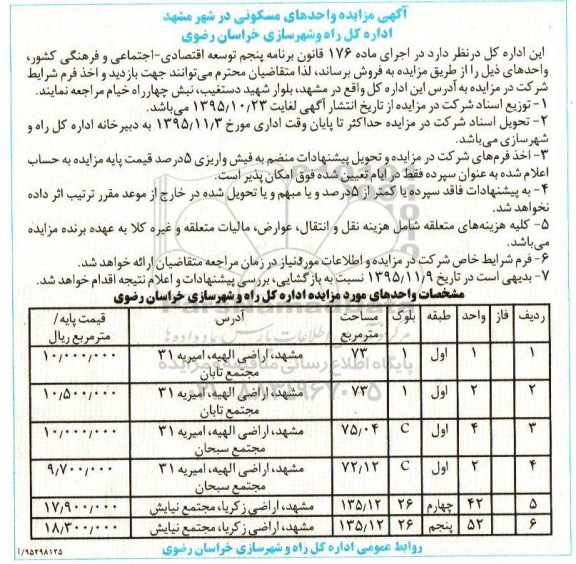 آگهی مزایده واحدهای مسکونی در شهر مشهد
اداره کل راه وشهرسازی خراسان رضوی
این اداره کل درنظر دارد در اجرای ماده ۱۷۶ قانون برنامه پنجم توسعه اقتصادی-اجتماعی و فرهنگی کشور،
واحدهای ذیل را از طریق مزایده به فروش برساند، لذا متقاضیان محترم می‌توانند جهت بازدید و اخذ فرم شرایط
شرکت در مزایده به آدرس این اداره کل واقع در مشهد، بلوار شهید دستغیب، نبش چهارراه خیام مراجعه نمایند.
۱- توزیع اسناد شرکت در مزایده از تاریخ انتشار آگهی لغایت ۱۳۹۵/۱۰/۲۳ می‌باشد.
۲- تحویل اسناد شرکت در مزایده حداکثر تا پایان وقت اداری مورخ ۱۳۹۵/۱۱/۳ به دبیرخانه اداره کل راه و
شهرسازی می‌باشد.
۳- اخذ فرم‌های شرکت در مزایده و تحویل پیشنهادات منضم به فیش واریزی ۵درصد قیمت پایه مزایده به حساب
اعلام شده به عنوان سپرده فقط در ایام تعیین شده فوق امکان پذیر است.
۴- به پیشنهادات فاقد سپرده یا کمتر از ۵درصد و یا مبهم و یا تحویل شده در خارج از موعد مقرر ترتیب اثر داده
نخواهد شد.
۵- کلیه هزینه‌های متعلقه شامل هزینه نقل و انتقال، عوارض، مالیات متعلقه و غیره کلا به عهده برنده مزایده
می‌باشد.
۶- فرم شرایط خاص شرکت در مزایده و اطلاعات موردنیاز در زمان مراجعه متقاضیان ارائه خواهد شد.
۷- بدیهی است در تاریخ ۱۳۹۵/۱۱/۹ نسبت به بازگشایی، بررسی پیشنهادات و اعلام نتیجه اقدام خواهد شد.
مشخصات واحدهای مورد مزایده اداره کل راه و شهرسازی خراسان رضوی
ردیف فاز واحد طبقه بلوک مساحت مترمربع آدرس قیمت پایه/ مترمربع ریال
۱ ۱ اول ۱ ۷۳ مشهد، اراضی الهیه، امیریه ۳۱ مجتمع تابان ۱۰/۰۰۰/۰۰۰
۲ ۲ اول ۱ ۷۳ مشهد، اراضی الهیه، امیریه ۳۱ مجتمع تابان ۱۰/۵۰۰/۰۰۰
۳ ۴ اول C ۷۵/۰۴ مشهد، اراضی الهیه، امیریه ۳۱ مجتمع سبحان ۱۰/۰۰۰/۰۰۰
۴ ۲ اول C ۷۲/۱۲ مشهد، اراضی الهیه، امیریه ۳۱ مجتمع سبحان ۹/۷۰۰/۰۰۰
۵ ۴۲ چهارم ۲۶ ۱۳۵/۱۲ مشهد، اراضی زکریا، مجتمع نیایش ۱۷/۹۰۰/۰۰۰
۶ ۵۲ پنجم ۲۶ ۱۳۵/۱۲ مشهد، اراضی زکریا، مجتمع نیایش ۱۸/۳۰۰/۰۰۰
روابط عمومی اداره کل راه و شهرسازی خراسان رضوی
۹۵۲۹۸۱۲۵/آ